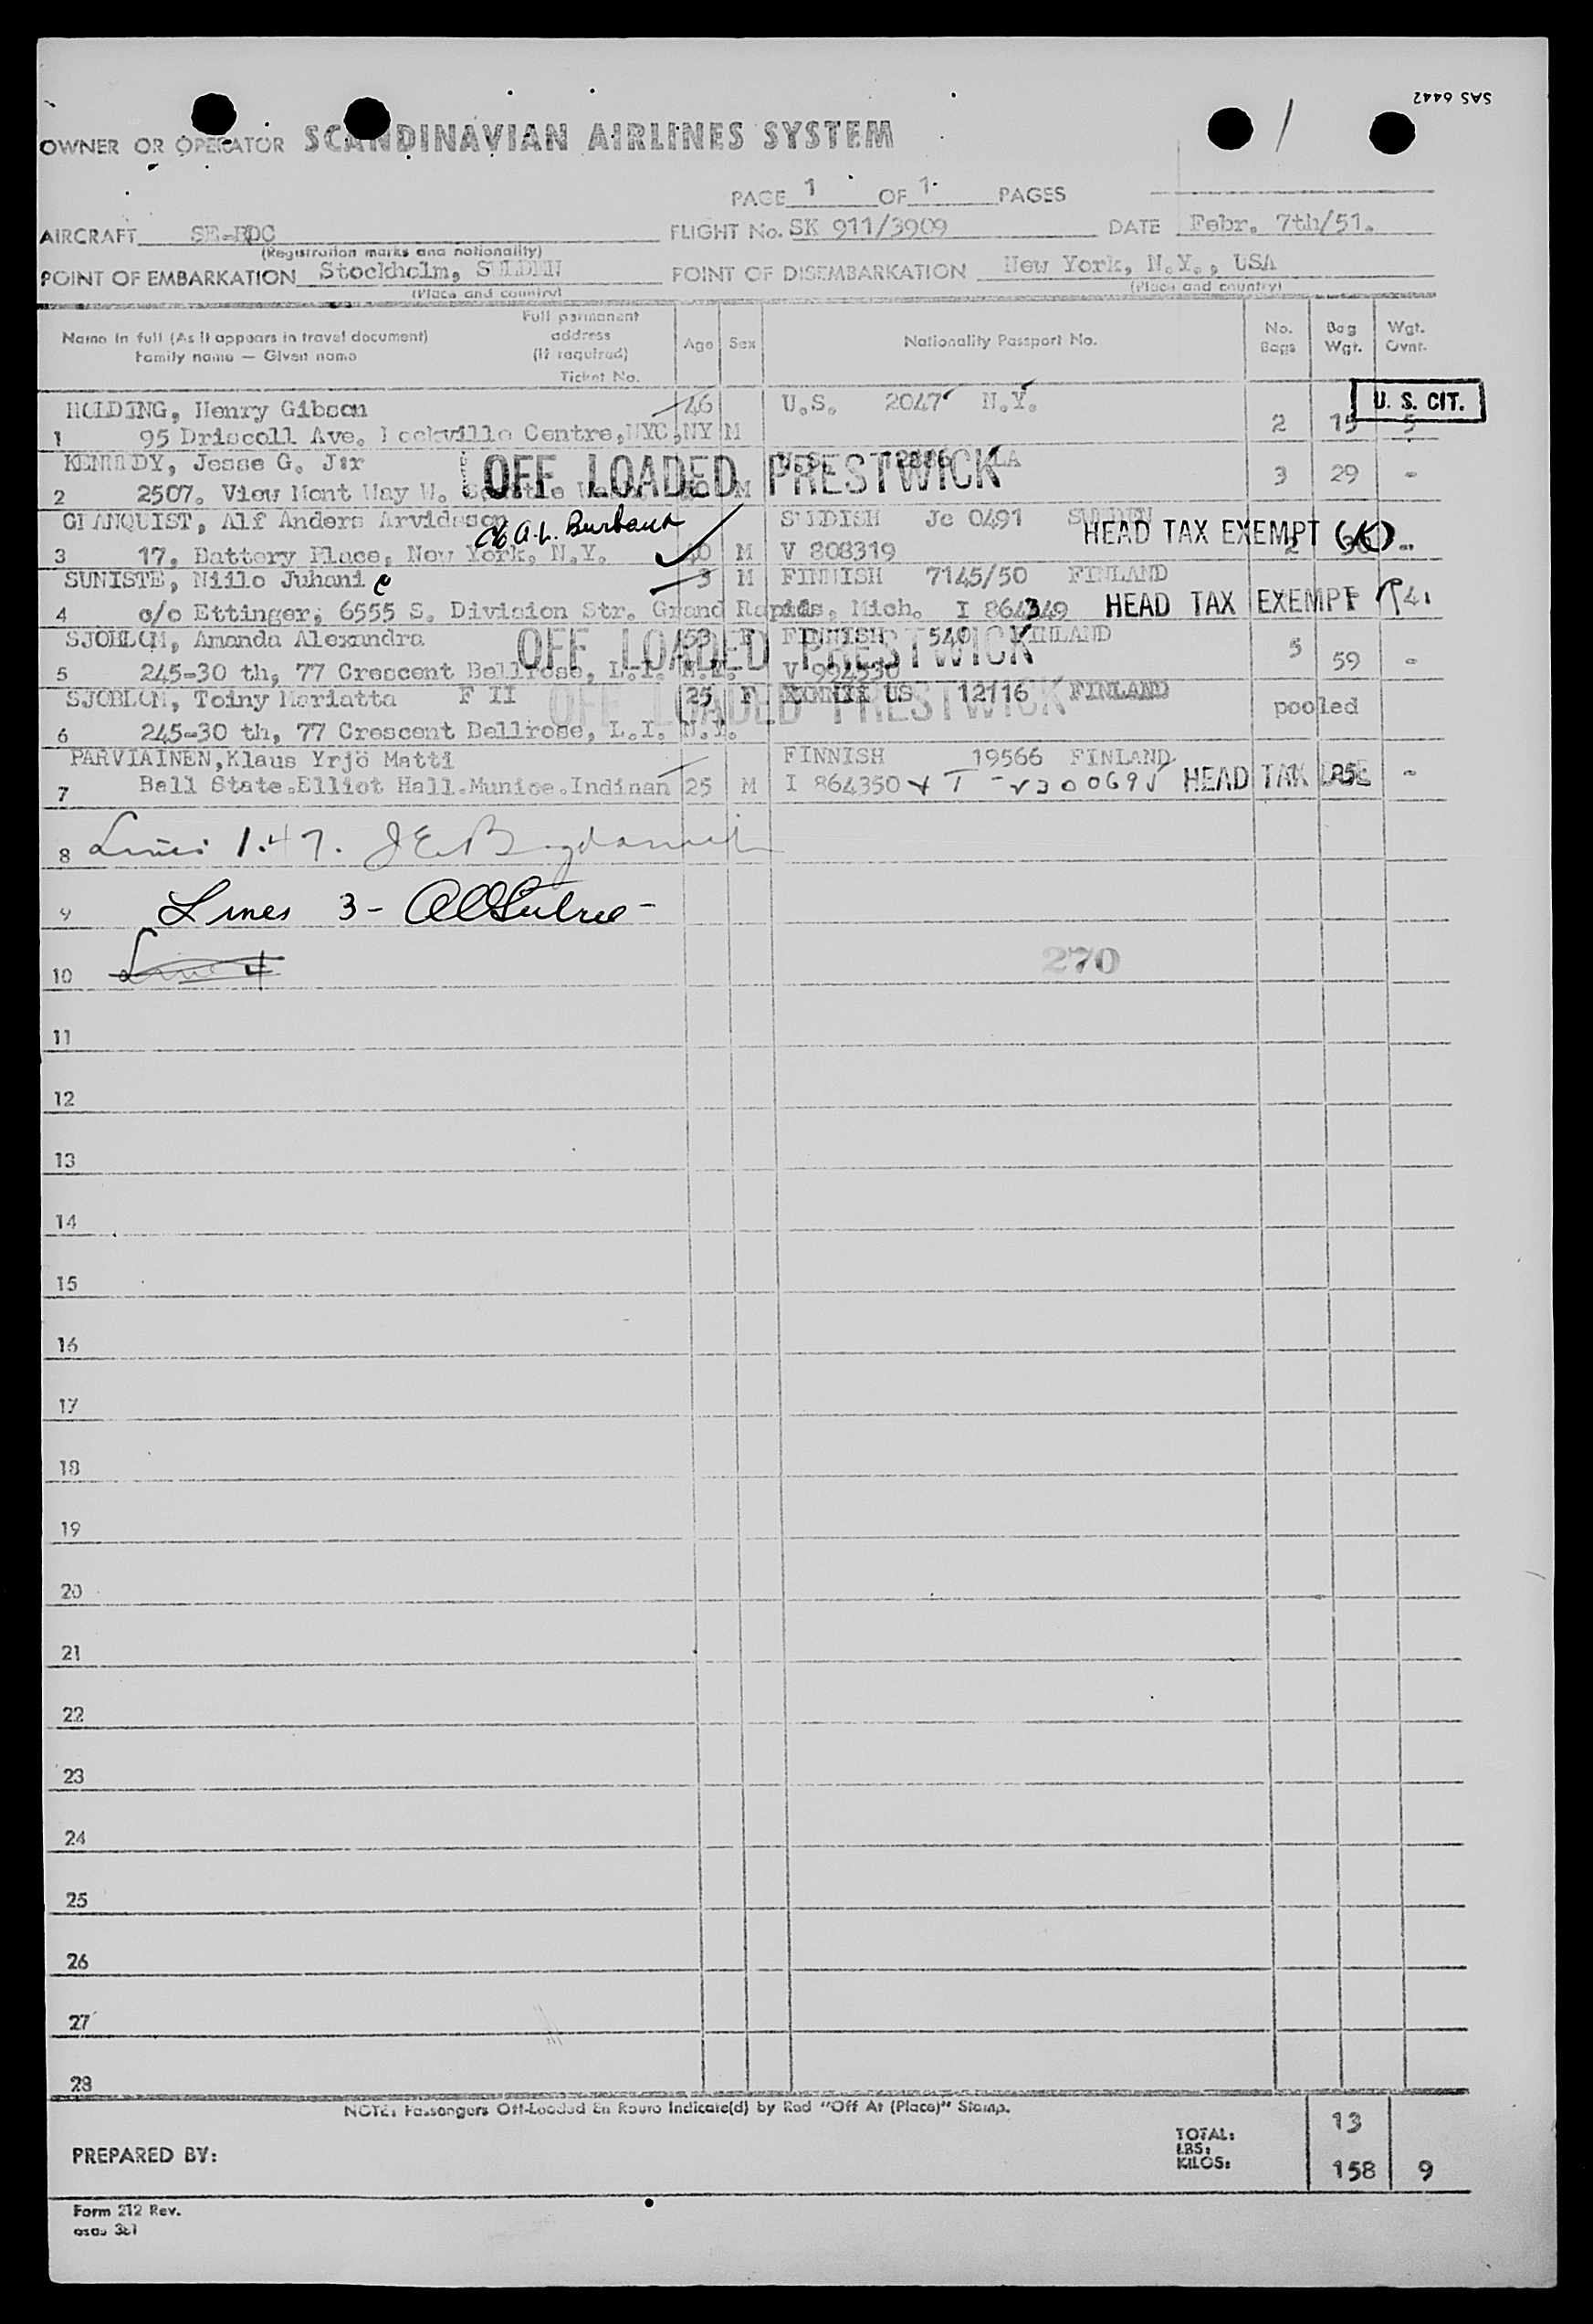 SAS 6442
OWNER OR OPERATOR SCANDINAVIAN AIRLINES SYSTEM
PAGE 1 OF 1 PAGES
AIRCRAFT SE-BDC FLIGHT No. SK 911/3909 DATE Febr. 7th/51.
(Registration marks and nationality)
POINT OF EMBARKATION Stockholm, SWEDEN POINT OF DISEMBARKATION New York, N.Y., USA
(Place and country) (Place and country)
Name in full (As it appears in travel document) Family name — Given name Full permanent address (If required) Ticket No. Age Sex Nationality Passport No. No. Bags Bag Wgt. Wgt. Ovnt.
HOLDING, Henry Gibson 46 U.S. 2047 N.Y. U. S. CIT.
1 95 Driscoll Ave. Rockville Centre, NYC, NY M 2 15 5
KENNEDY, Jesse G. OFF LOADED PRESTWICK
2 2507. View Mont Way W. Seattle M 3 29 -
Alf Anders Arvidsson SWEDISH Jc 0491 SWEDEN HEAD TAX EXEMPT (K)
3 17, Battery Place, New York, N.Y. 40 M V 808319 2 -
SUNISTE, Niilo Juhani 3 M FINNISH 7145/50 FINLAND
4 c/o Ettinger, 6555 S. Division Str. Grand Rapids, Mich. I 864349 HEAD TAX EXEMPT
SJOBLOM, Amanda Alexandra 53 F FINNISH 540 FINLAND OFF LOADED PRESTWICK
5 245-30 th, 77 Crescent Bellrose, L.I. N.Y. V 994530 5 59 -
SJOBLOM, Toiny Mariatta F II 25 F US 12116 FINLAND OFF LOADED PRESTWICK pooled
6 245-30 th, 77 Crescent Bellrose, L.I. N.Y.
PARVIAINEN, Klaus Yrjö Matti FINNISH 19566 FINLAND
7 Ball State.Elliot Hall.Munice.Indinan 25 M I 864350 HEAD TAX 25 -
8 Lines 1.47.
9 Lines 3 -
10 Line 4
270
11
12
13
14
15
16
17
18
19
20
21
22
23
24
25
26
27
28
NOTE: Passengers Off-Loaded En Route Indicate(d) by Red "Off At (Place)" Stamp.
PREPARED BY: TOTAL: 13
LBS:
KILOS: 158 9
Form 212 Rev.